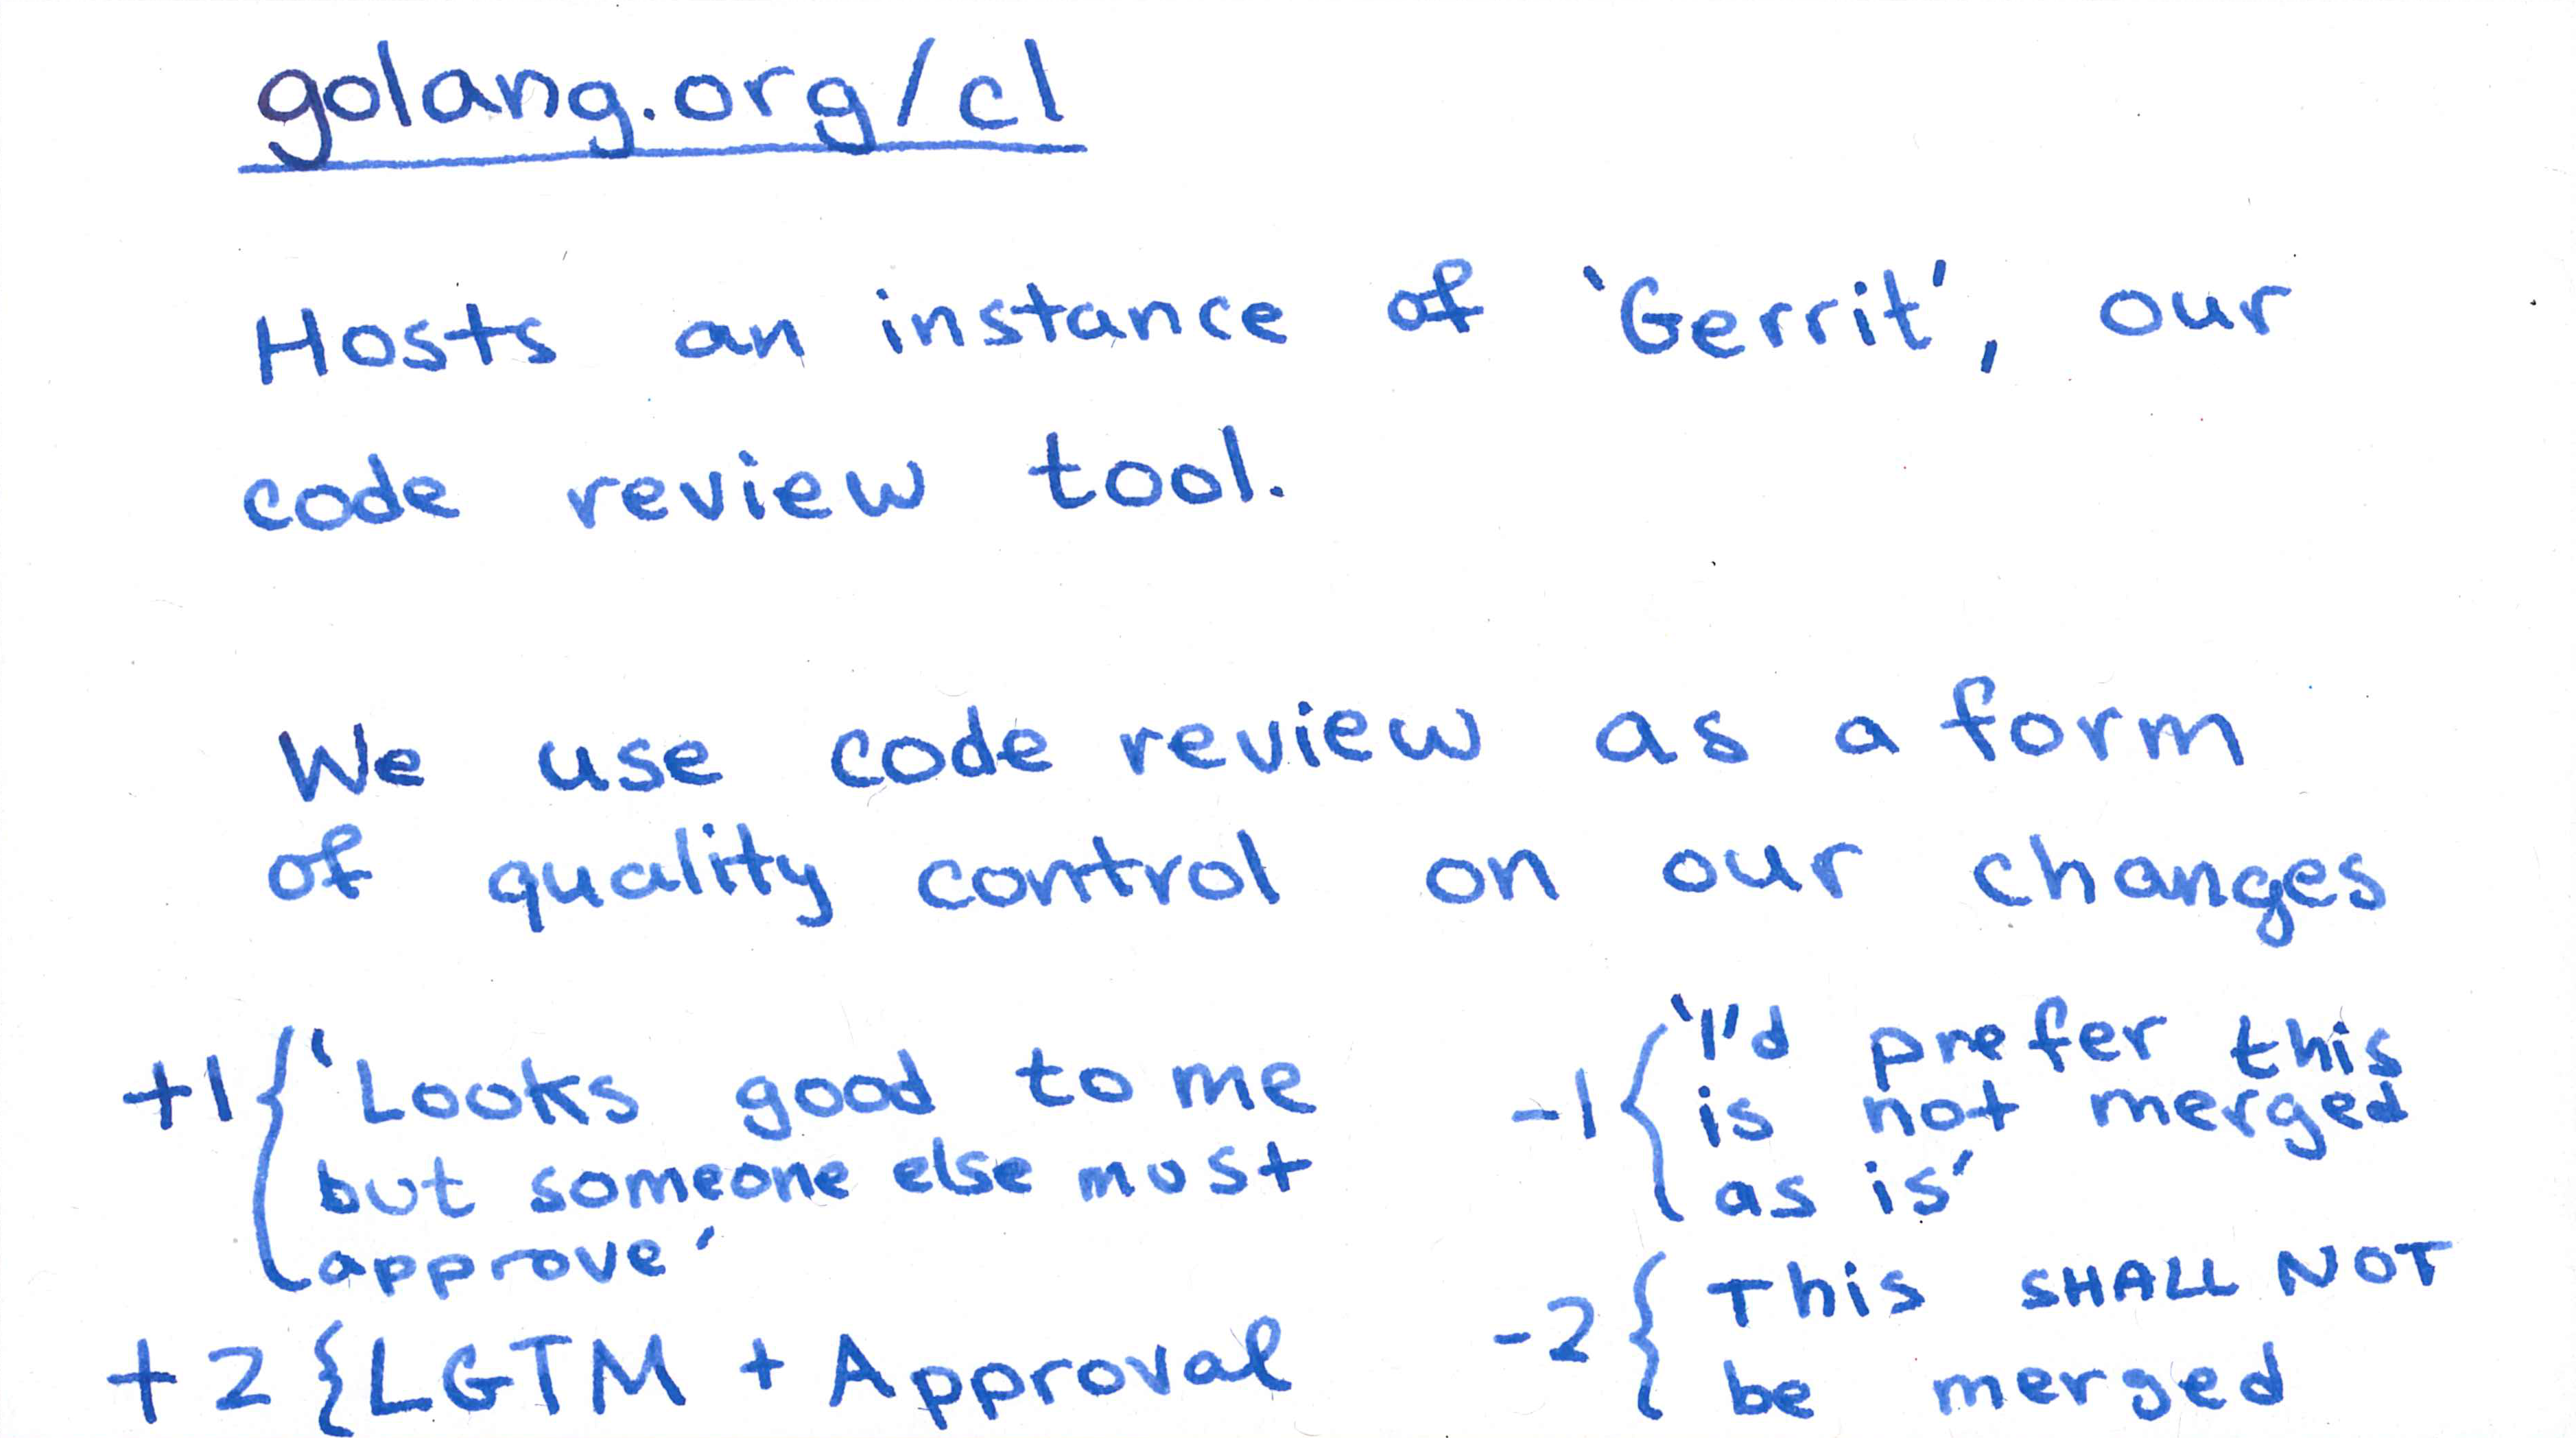 golang.org/cl
Hosts an instance of 'Gerrit', our
code review tool.
We use code review as a form
of quality control on our changes
+1 { 'Looks good to me
but someone else must
approve'
+2 { LGTM + Approval
-1 { 'I'd prefer this
is not merged
as is'
-2 { This SHALL NOT
be merged